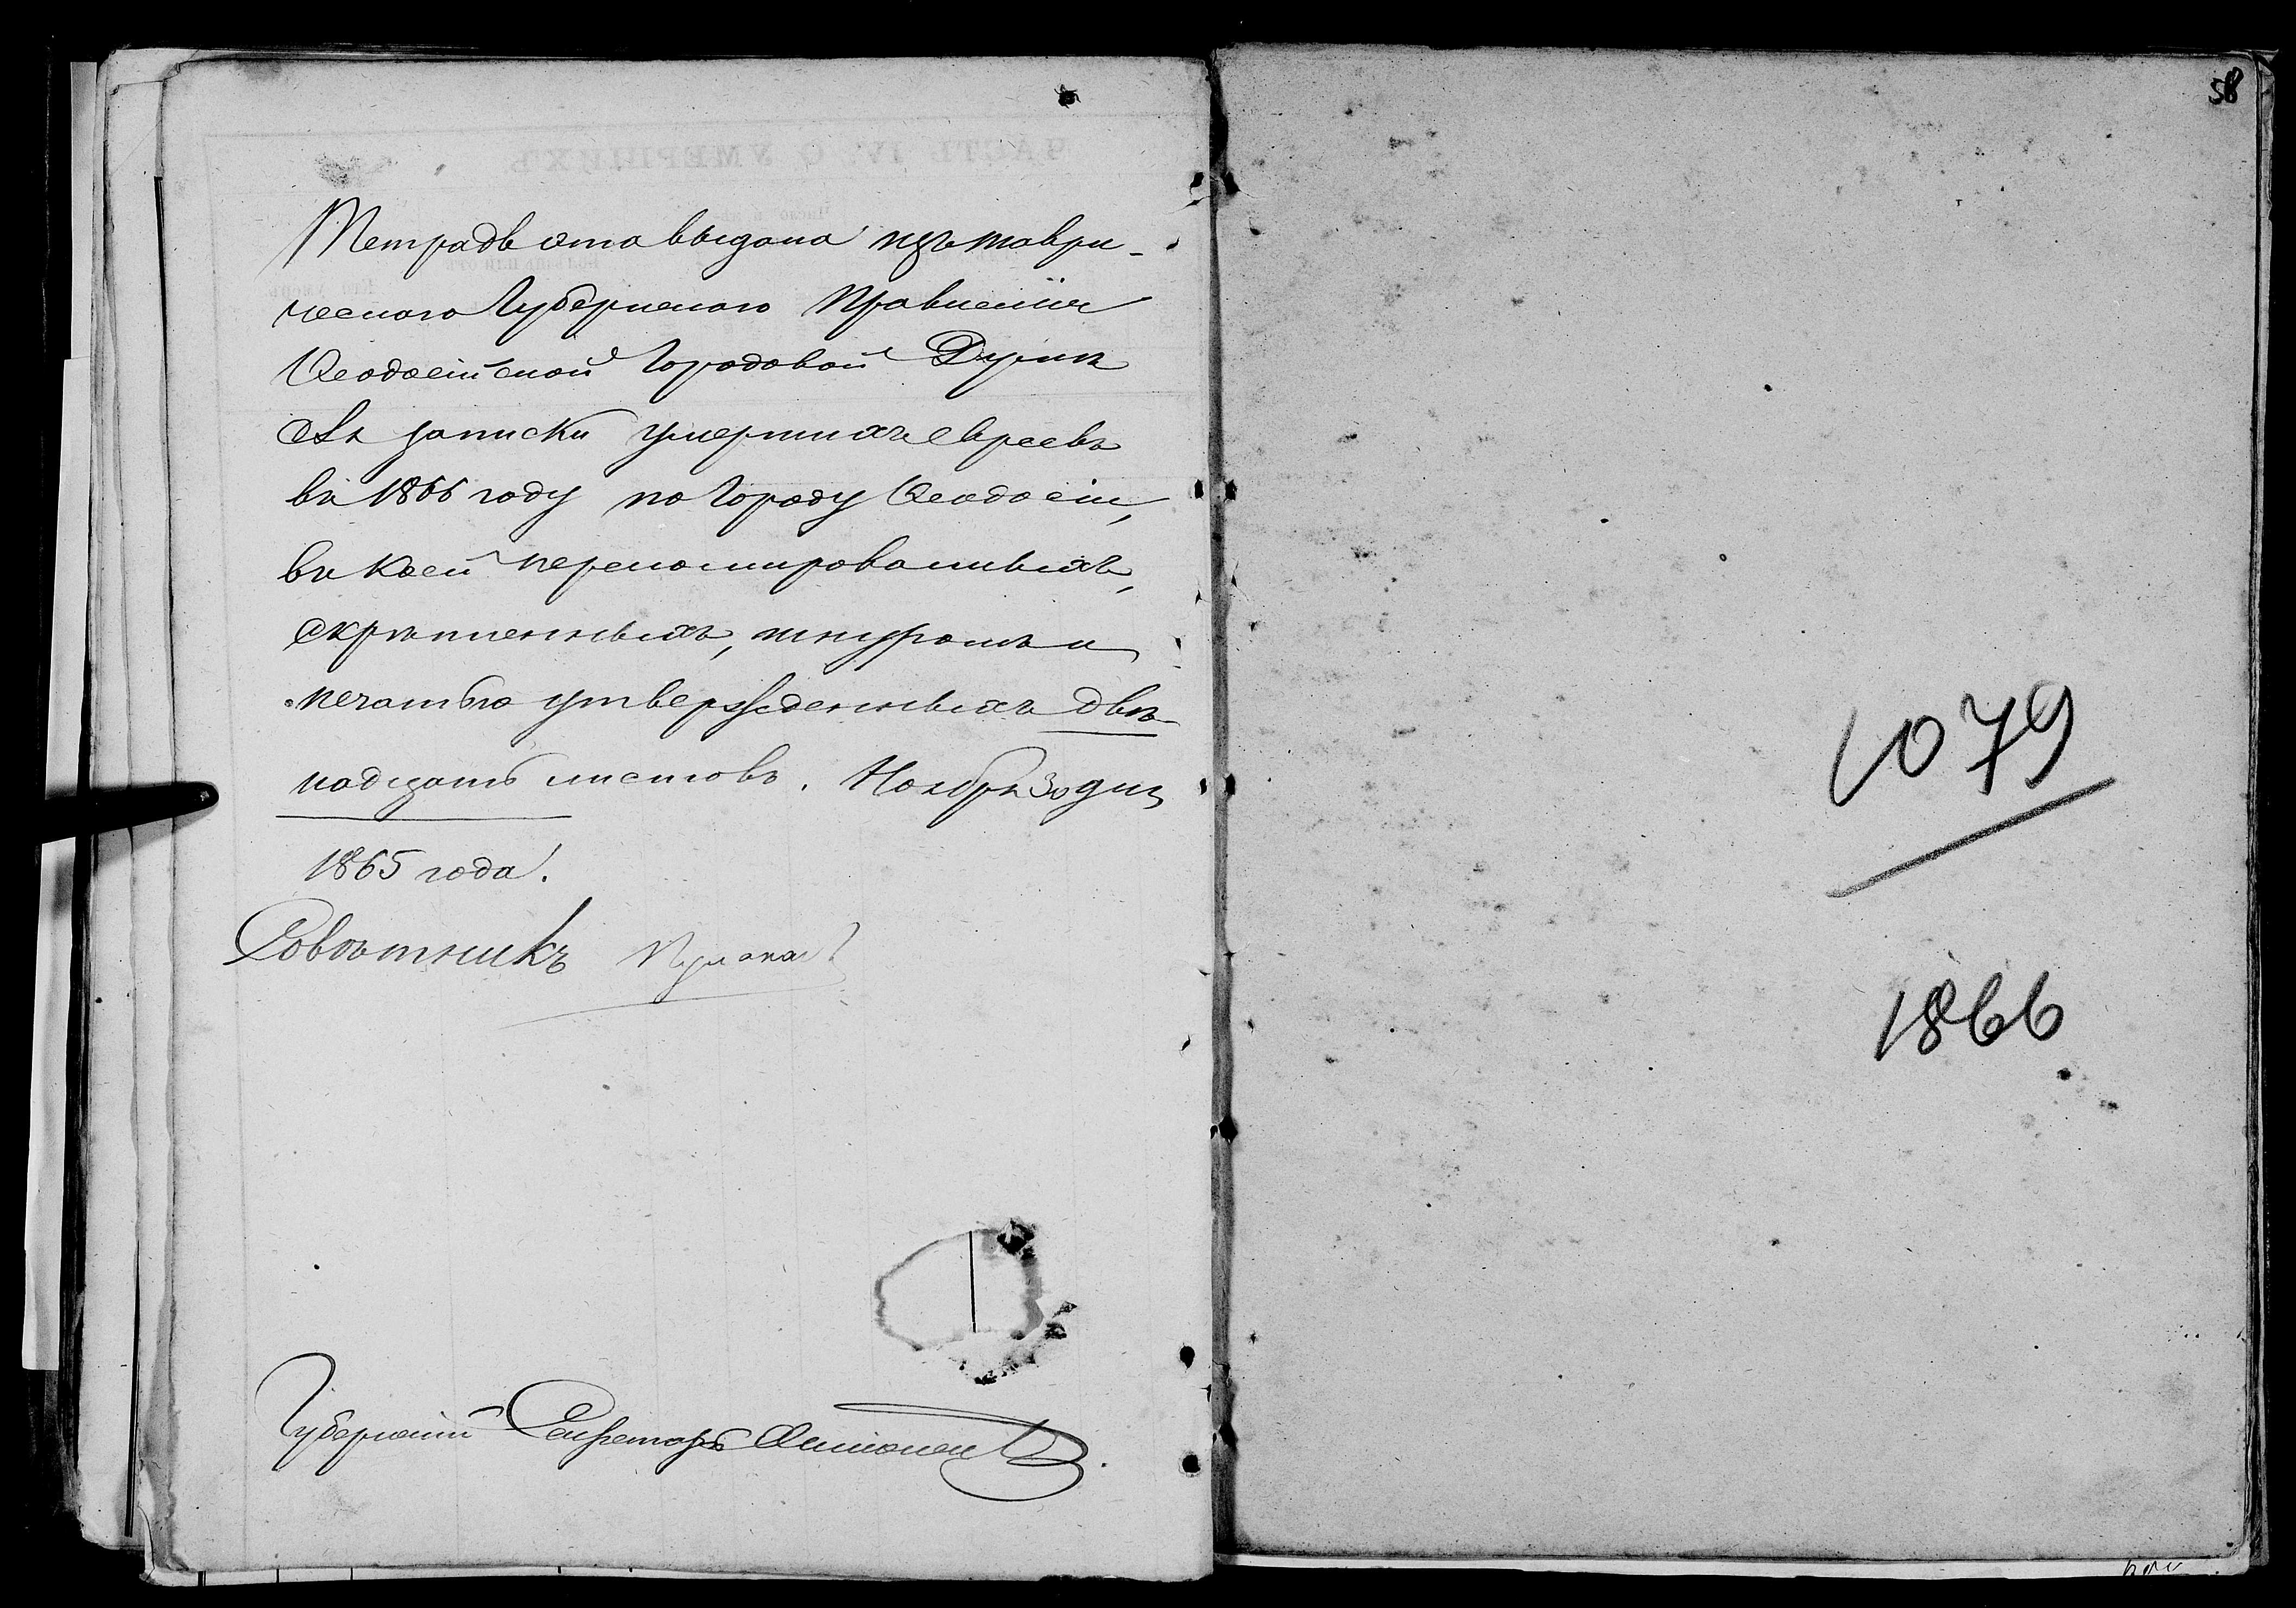 Тетрадь эта выдана изъ Таври-
ческаго Губернскаго Правленія
Ѳеодосійской Городовой Думѣ
для записки умершихъ евреевъ
въ 1866 году по городу Ѳеодосіи,
въ коей переномированныхъ,
скрѣпленныхъ, шнуромъ и
печатью утвержденныхъ двѣ-
надцать листовъ. Ноября 30 дня
1865 года.
Совѣтникъ
Губернскій Секретарь
58
1079
1866